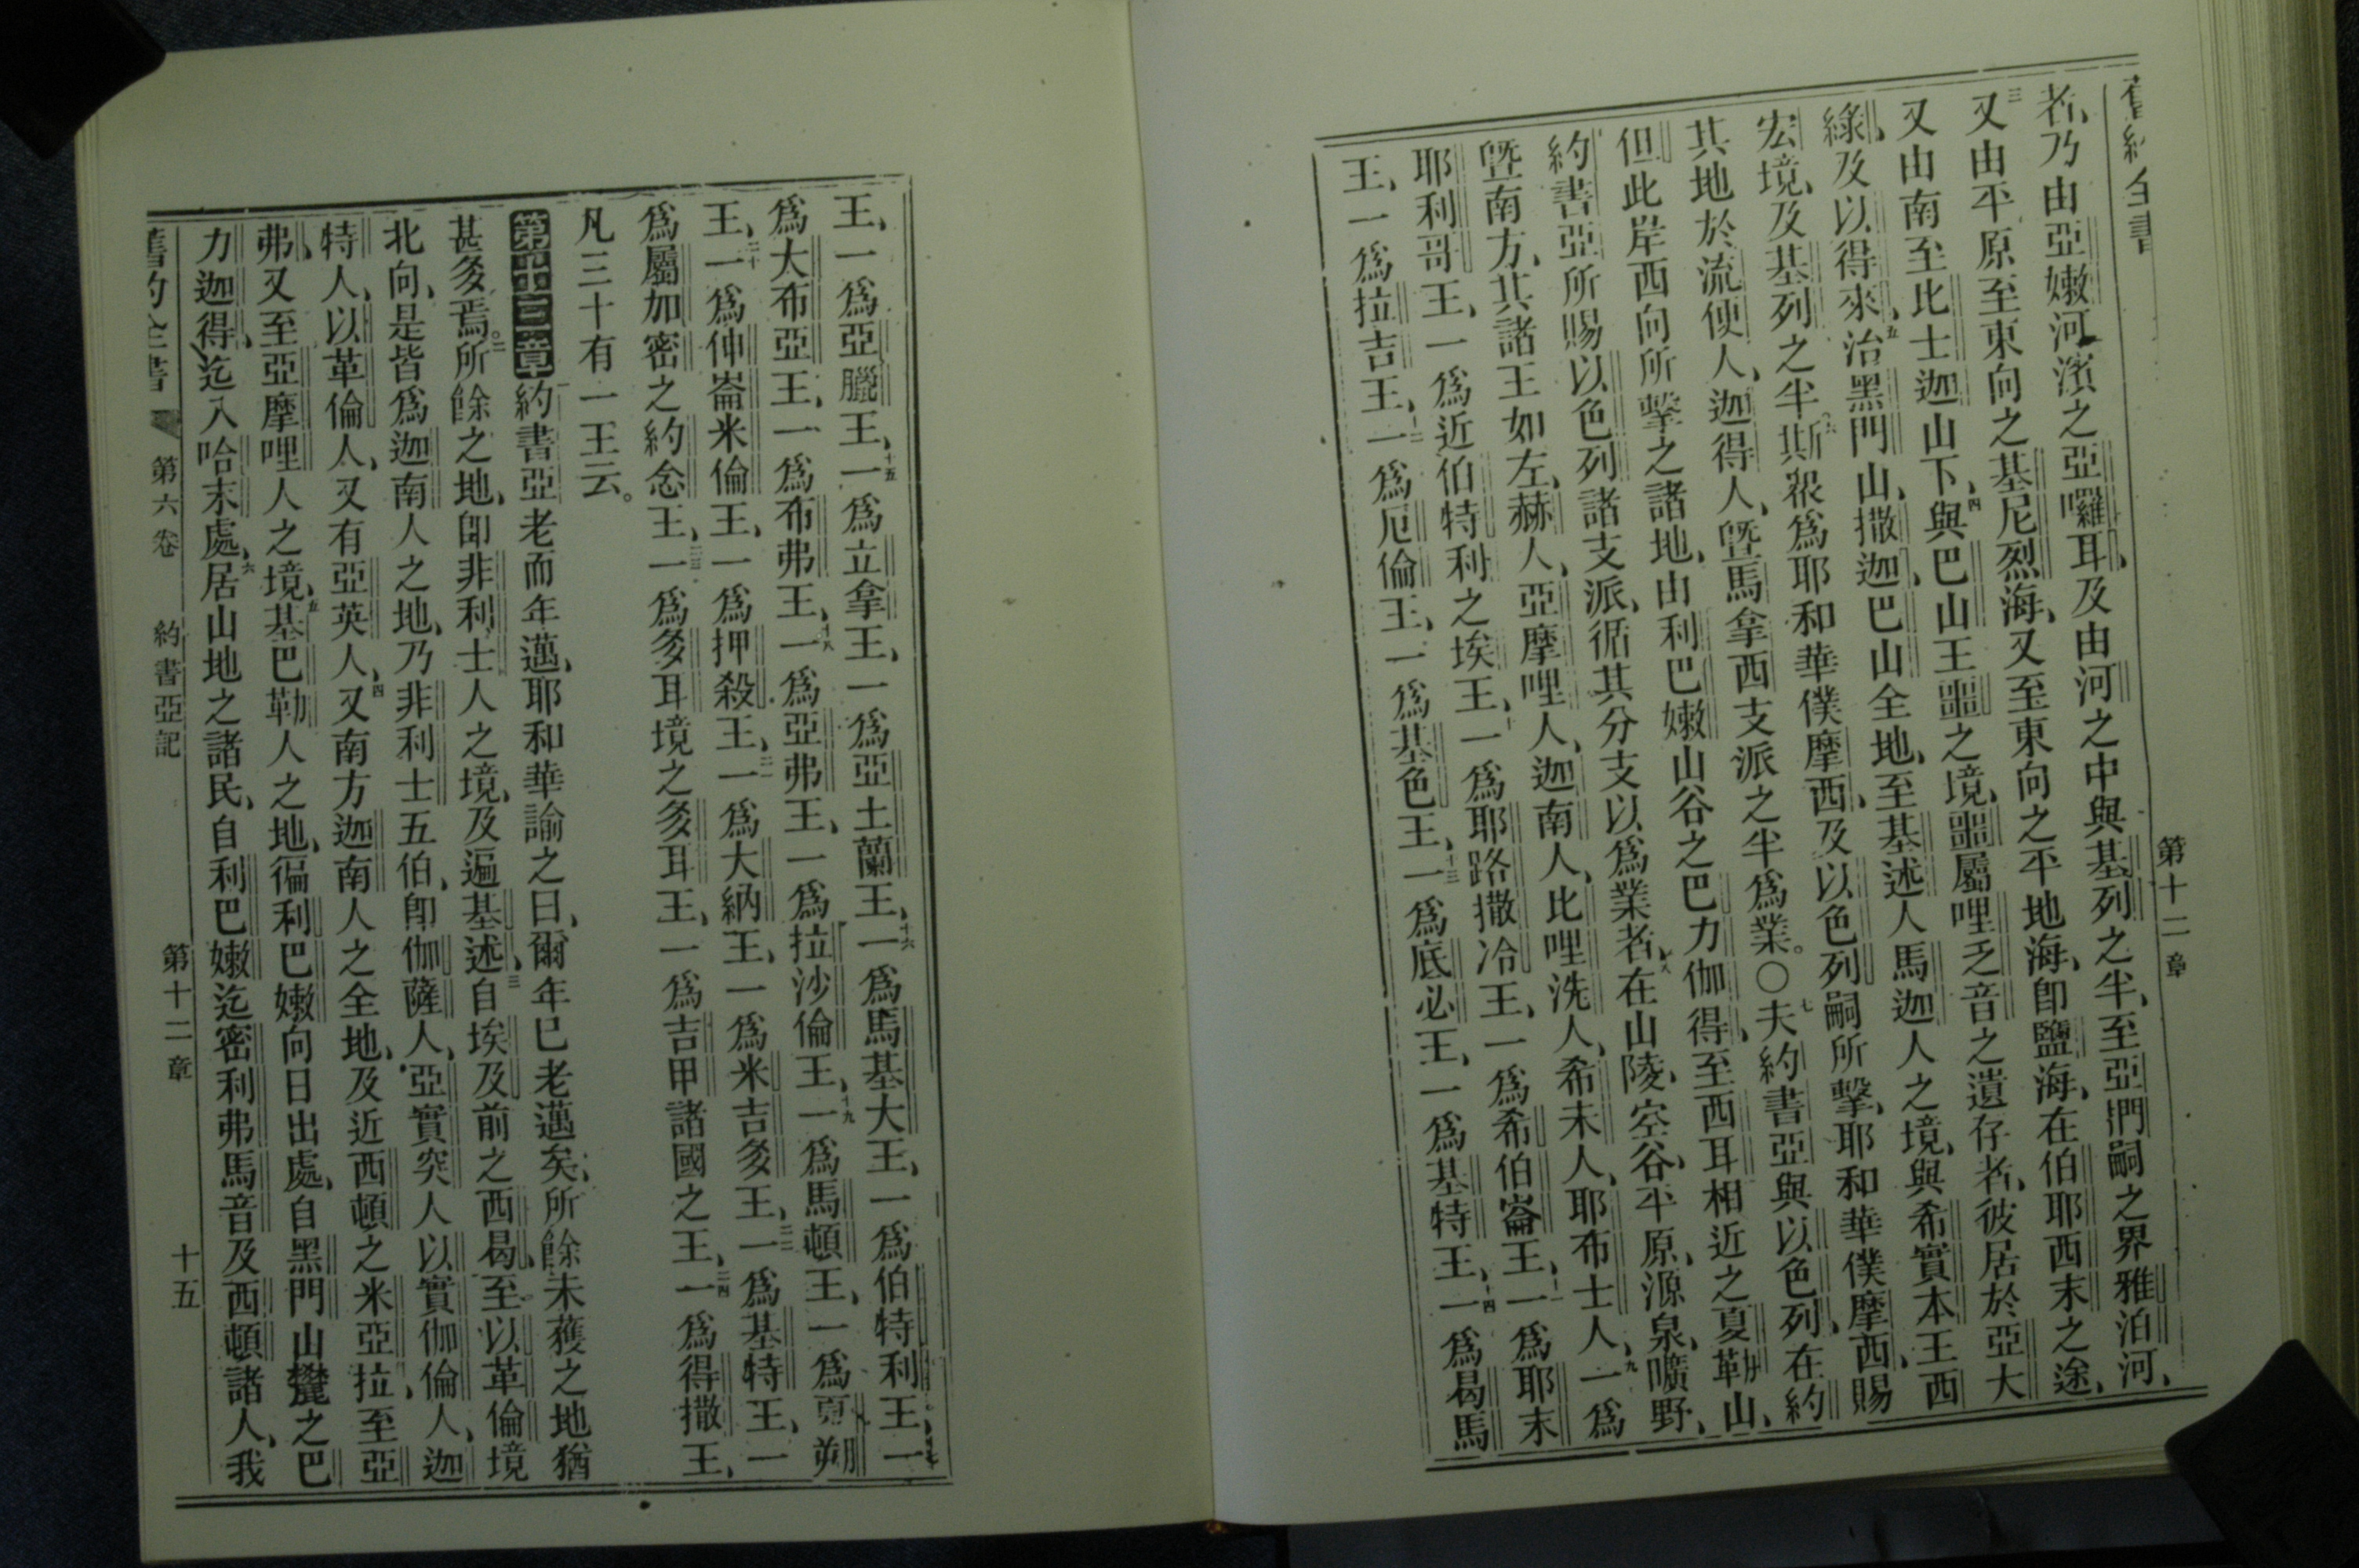 舊約全書
第十二章
者、乃由亞嫩河濱之亞囉耳、及由河之中與基列之半、至亞捫嗣之界雅泊河、
三又由平原至東向之基尼烈海、又至東向之平地海、卽鹽海、在伯耶西末之途、
又由南至比士迦山下、四與巴山王噩之境、噩屬哩乏音之遺存者、彼居於亞大
綠、及以得來、五治黑門山、撒迦、巴山全地、至基述人馬迦人之境、與希實本王西
宏境、及基列之半、六斯衆爲耶和華僕摩西、及以色列嗣所擊、耶和華僕摩西、賜
其地於流便人、迦得人、曁馬拿西支派之半爲業。○七夫約書亞與以色列、在約
但此岸西向所擊之諸地、由利巴嫩山谷之巴力伽得、至西耳相近之夏勒山、
約書亞所賜以色列諸支派、循其分支以爲業者、八在山陵、空谷、平原、源泉、曠野、
曁南方、其諸王如左、赫人、亞摩哩人、迦南人、比哩洗人、希未人、耶布士人、九一爲
耶利哥王、一爲近伯特利之埃王、十一爲耶路撒冷王、一爲希伯崙王、十一一爲耶末
王、一爲拉吉王、十二一爲厄倫王、一爲基色王、十三一爲底必王、一爲基特王、十四一爲曷馬
王、一爲亞臘王、十五一爲立拿王、一爲亞土蘭王、十六一爲馬基大王、一爲伯特利王、十七一
爲大布亞王、一爲布弗王、十八一爲亞弗王、一爲拉沙倫王、十九一爲馬頓王、一爲夏朔
王、二十一爲伸崙米倫王、一爲押殺王、二一一爲大納王、一爲米吉多王、二二一爲基特王、一
爲屬加密之約念王、二三一爲多耳境之多耳王、一爲吉甲諸國之王、二四一爲得撒王、
凡三十有一王云。
第十三章 一約書亞老而年邁、耶和華諭之曰、爾年已老邁矣、所餘未獲之地猶
甚多焉。二所餘之地、卽非利士人之境、及遍基述、三自埃及前之西曷、至以革倫境
北向、是皆爲迦南人之地、乃非利士五伯、卽伽薩人、亞實突人、以實伽倫人、迦
特人、以革倫人、又有亞英人、四又南方迦南人之全地、及近西頓之米亞拉、至亞
弗、又至亞摩哩人之境、五基巴勒人之地、徧利巴嫩向日出處、自黑門山麓之巴
力迦得、迄入哈末處、六居山地之諸民、自利巴嫩迄密利弗馬音及西頓諸人、我
舊約全書 第六卷 約書亞記 第十二章 十五